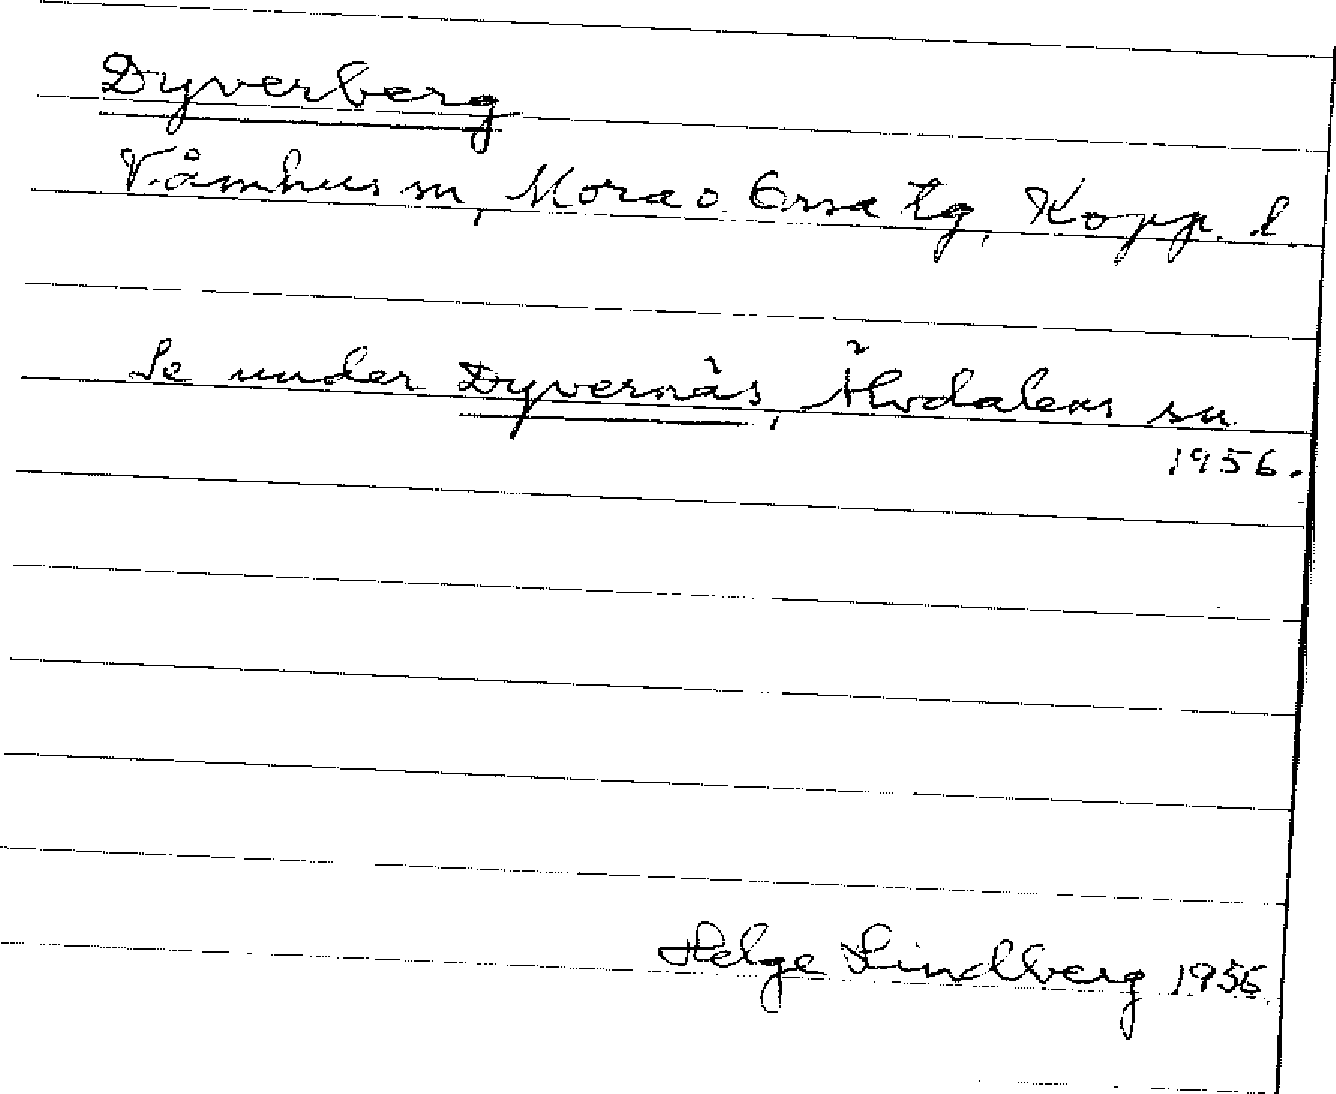 Dyverberg
Våmhus sn, Mora o Orsa tg, Kopp. l.
Se under Dyvernäs, Älvdalens sn
1956.
Helge Lindberg 1956